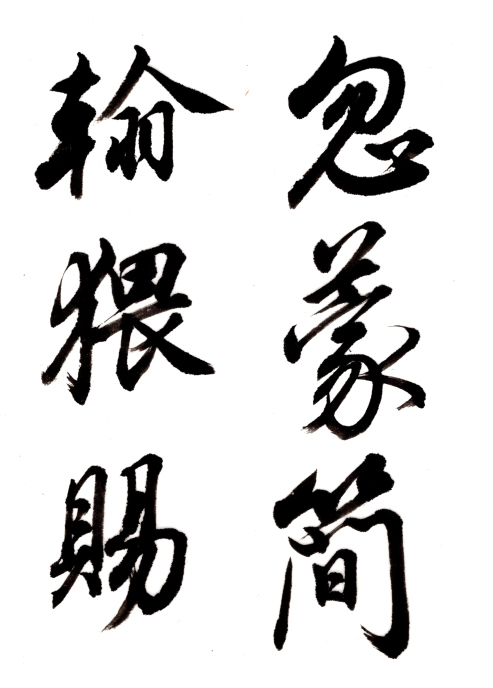 忽蒙簡
翰猥賜